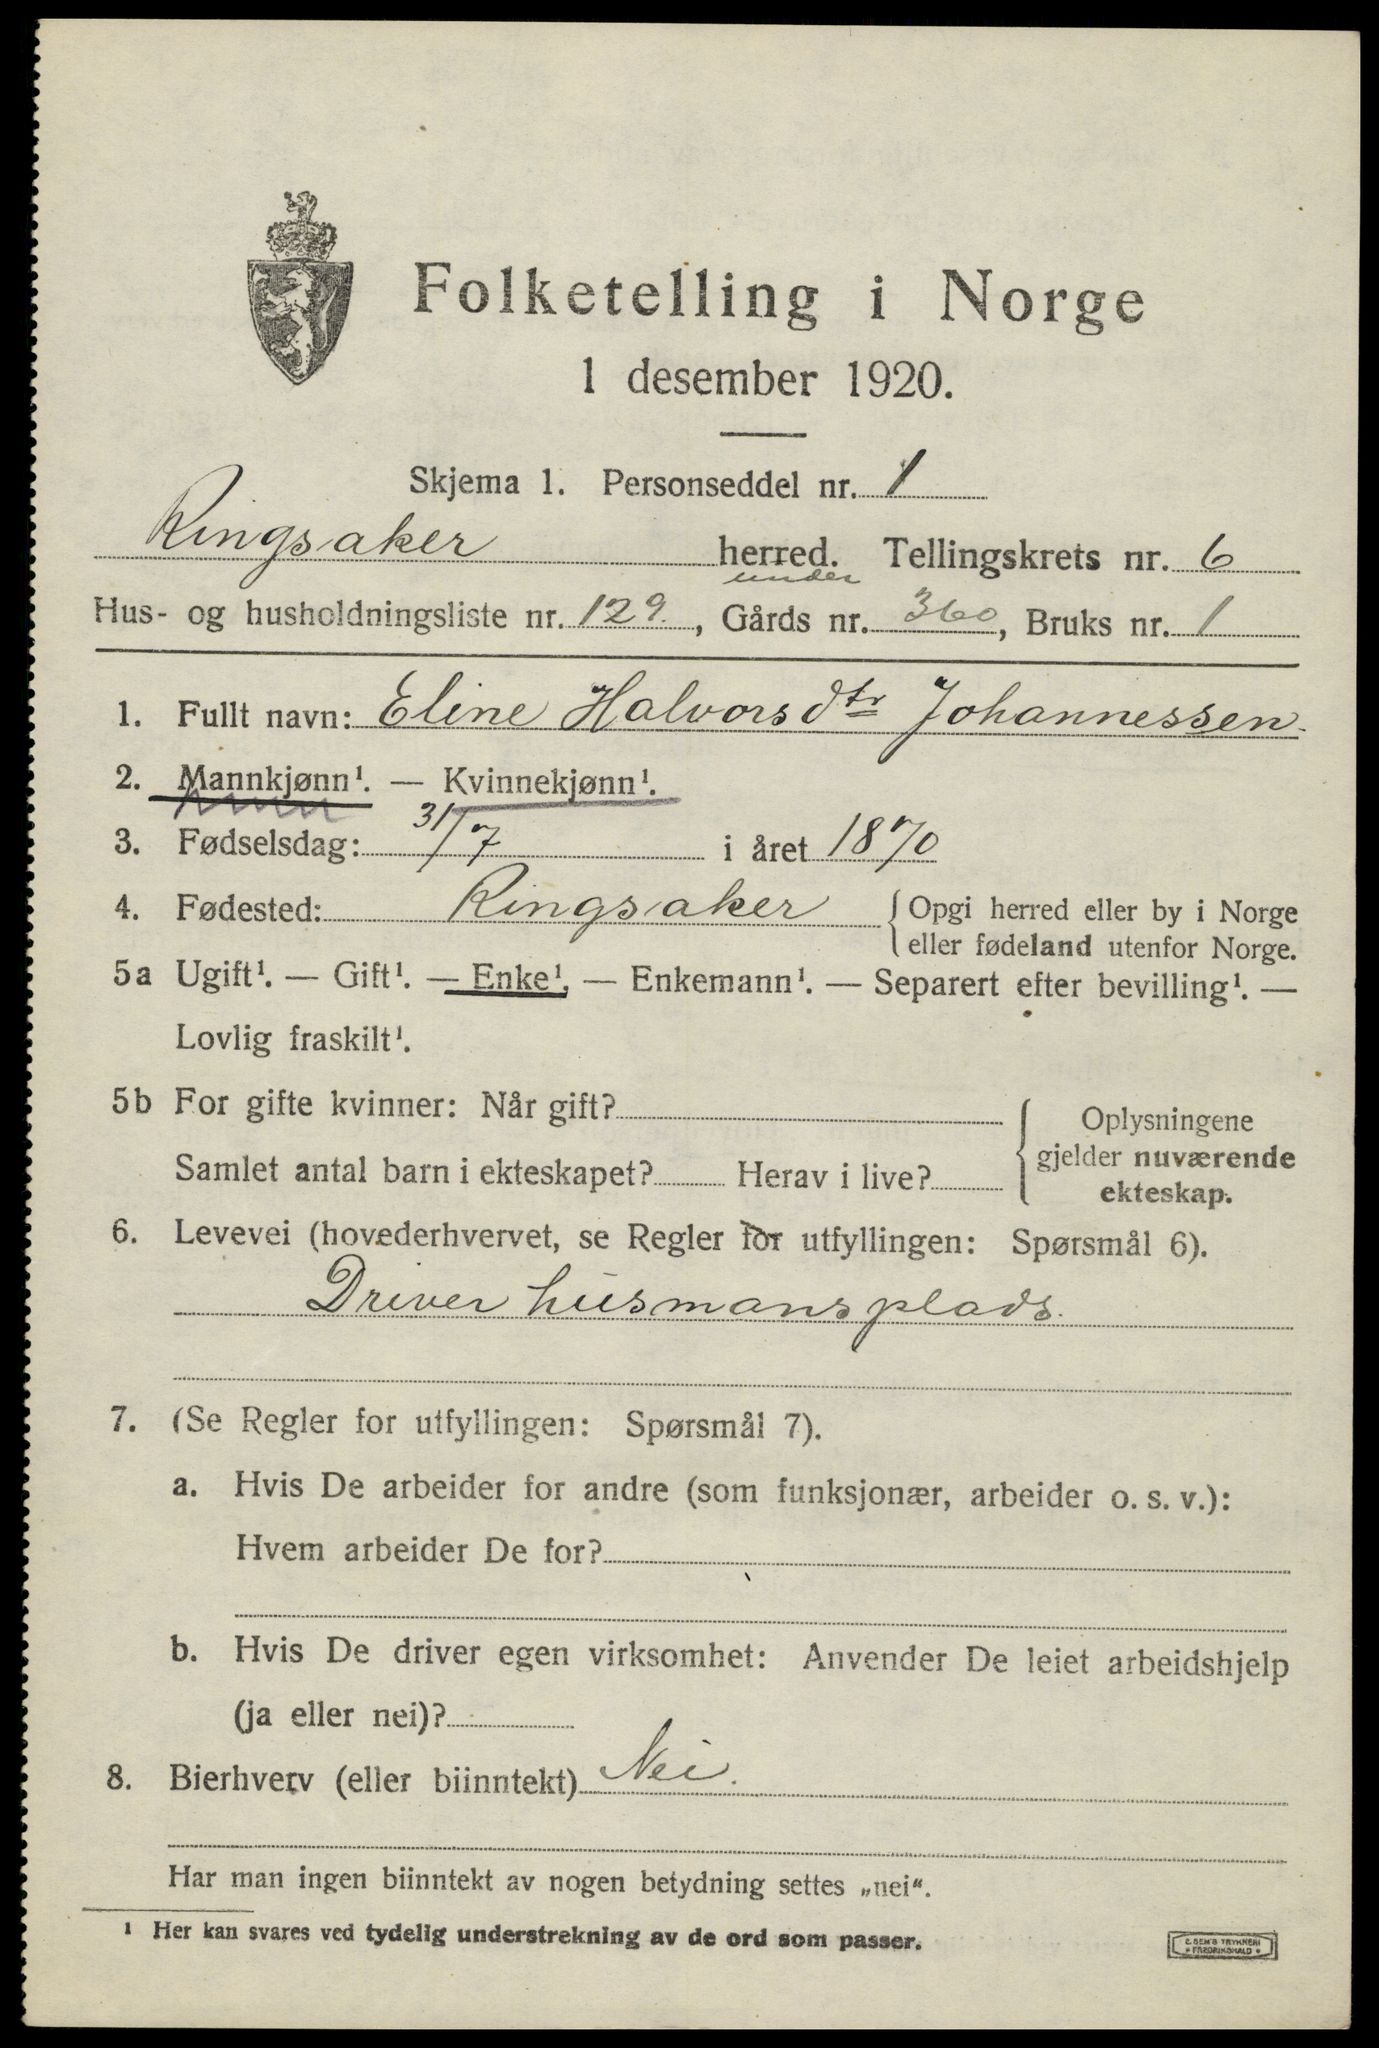 Folketelling i Norge
1 desember 1920.
Skjema 1. Personseddel nr. 1
Ringsaker herred. Tellingskrets nr. 6
under
Hus- og husholdningsliste nr. 129., Gårds nr. 360, Bruks nr. 1
1. Fullt navn: Eline Halvorsdtr Johannessen.
2. Mannkjønn¹. — Kvinnekjønn¹.
3. Fødselsdag: 31/7 i året 1870
4. Fødested: Ringsaker { Opgi herred eller by i Norge
eller fødeland utenfor Norge.
5a Ugift¹. — Gift¹. — Enke¹. — Enkemann¹. — Separert efter bevilling¹. —
Lovlig fraskilt¹.
5b For gifte kvinner: Når gift?
Samlet antal barn i ekteskapet? Herav i live?
{ Oplysningene
gjelder nuværende
ekteskap.
6. Levevei (hovederhvervet, se Regler for utfyllingen: Spørsmål 6).
Driver husmansplads.
7. (Se Regler for utfyllingen: Spørsmål 7).
a. Hvis De arbeider for andre (som funksjonær, arbeider o. s. v.):
Hvem arbeider De for?
b. Hvis De driver egen virksomhet: Anvender De leiet arbeidshjelp
(ja eller nei)?
8. Bierhverv (eller biinntekt) Nei.
Har man ingen biinntekt av nogen betydning settes „nei“.
¹ Her kan svares ved tydelig understrekning av de ord som passer.
E. SEM'S TRYKKERI
• FREDRIKSHALD •